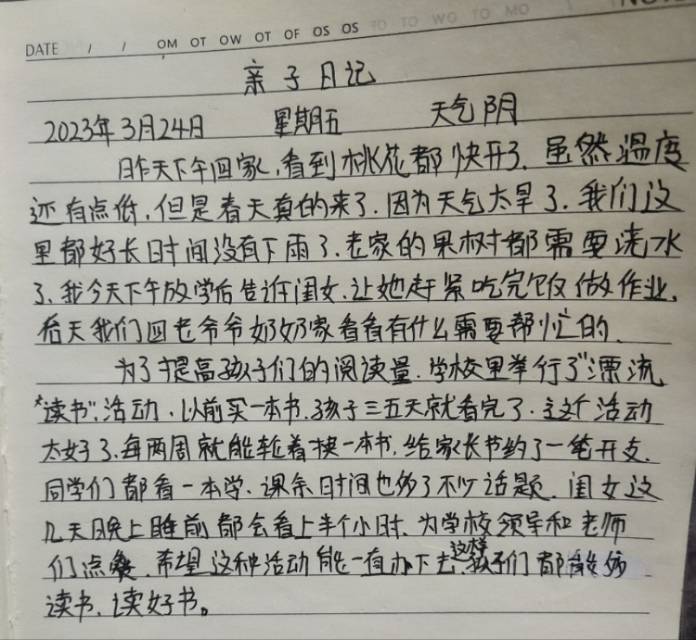 DATE / / OM OT OW OT OF OS OS
亲子日记
2023年3月24日 星期五 天气阴
昨天下午回家,看到桃花都快开了.虽然温度
还有点低,但是春天真的来了.因为天气太旱了.我们这
里都好长时间没有下雨了.老家的果树都需要浇水
了.我今天下午放学后告诉闺女.让她赶紧吃完饭做作业.
后天我们回老爷爷奶奶家看看有什么需要帮忙的.
为了提高孩子们的阅读量.学校里举行了"漂流
"读书".活动.以前买一本书.孩子三五天就看完了.这个活动
太好了.每两周就能轮着换一本书.给家长节约了一笔开支.
同学们都看一本学.课余时间也多了不少话题.闺女这
几天晚上睡前都会看上半个小时.为学校领导和老师
们点赞.希望这种活动能一直办下去.这样孩子们都能多
读书.读好书。